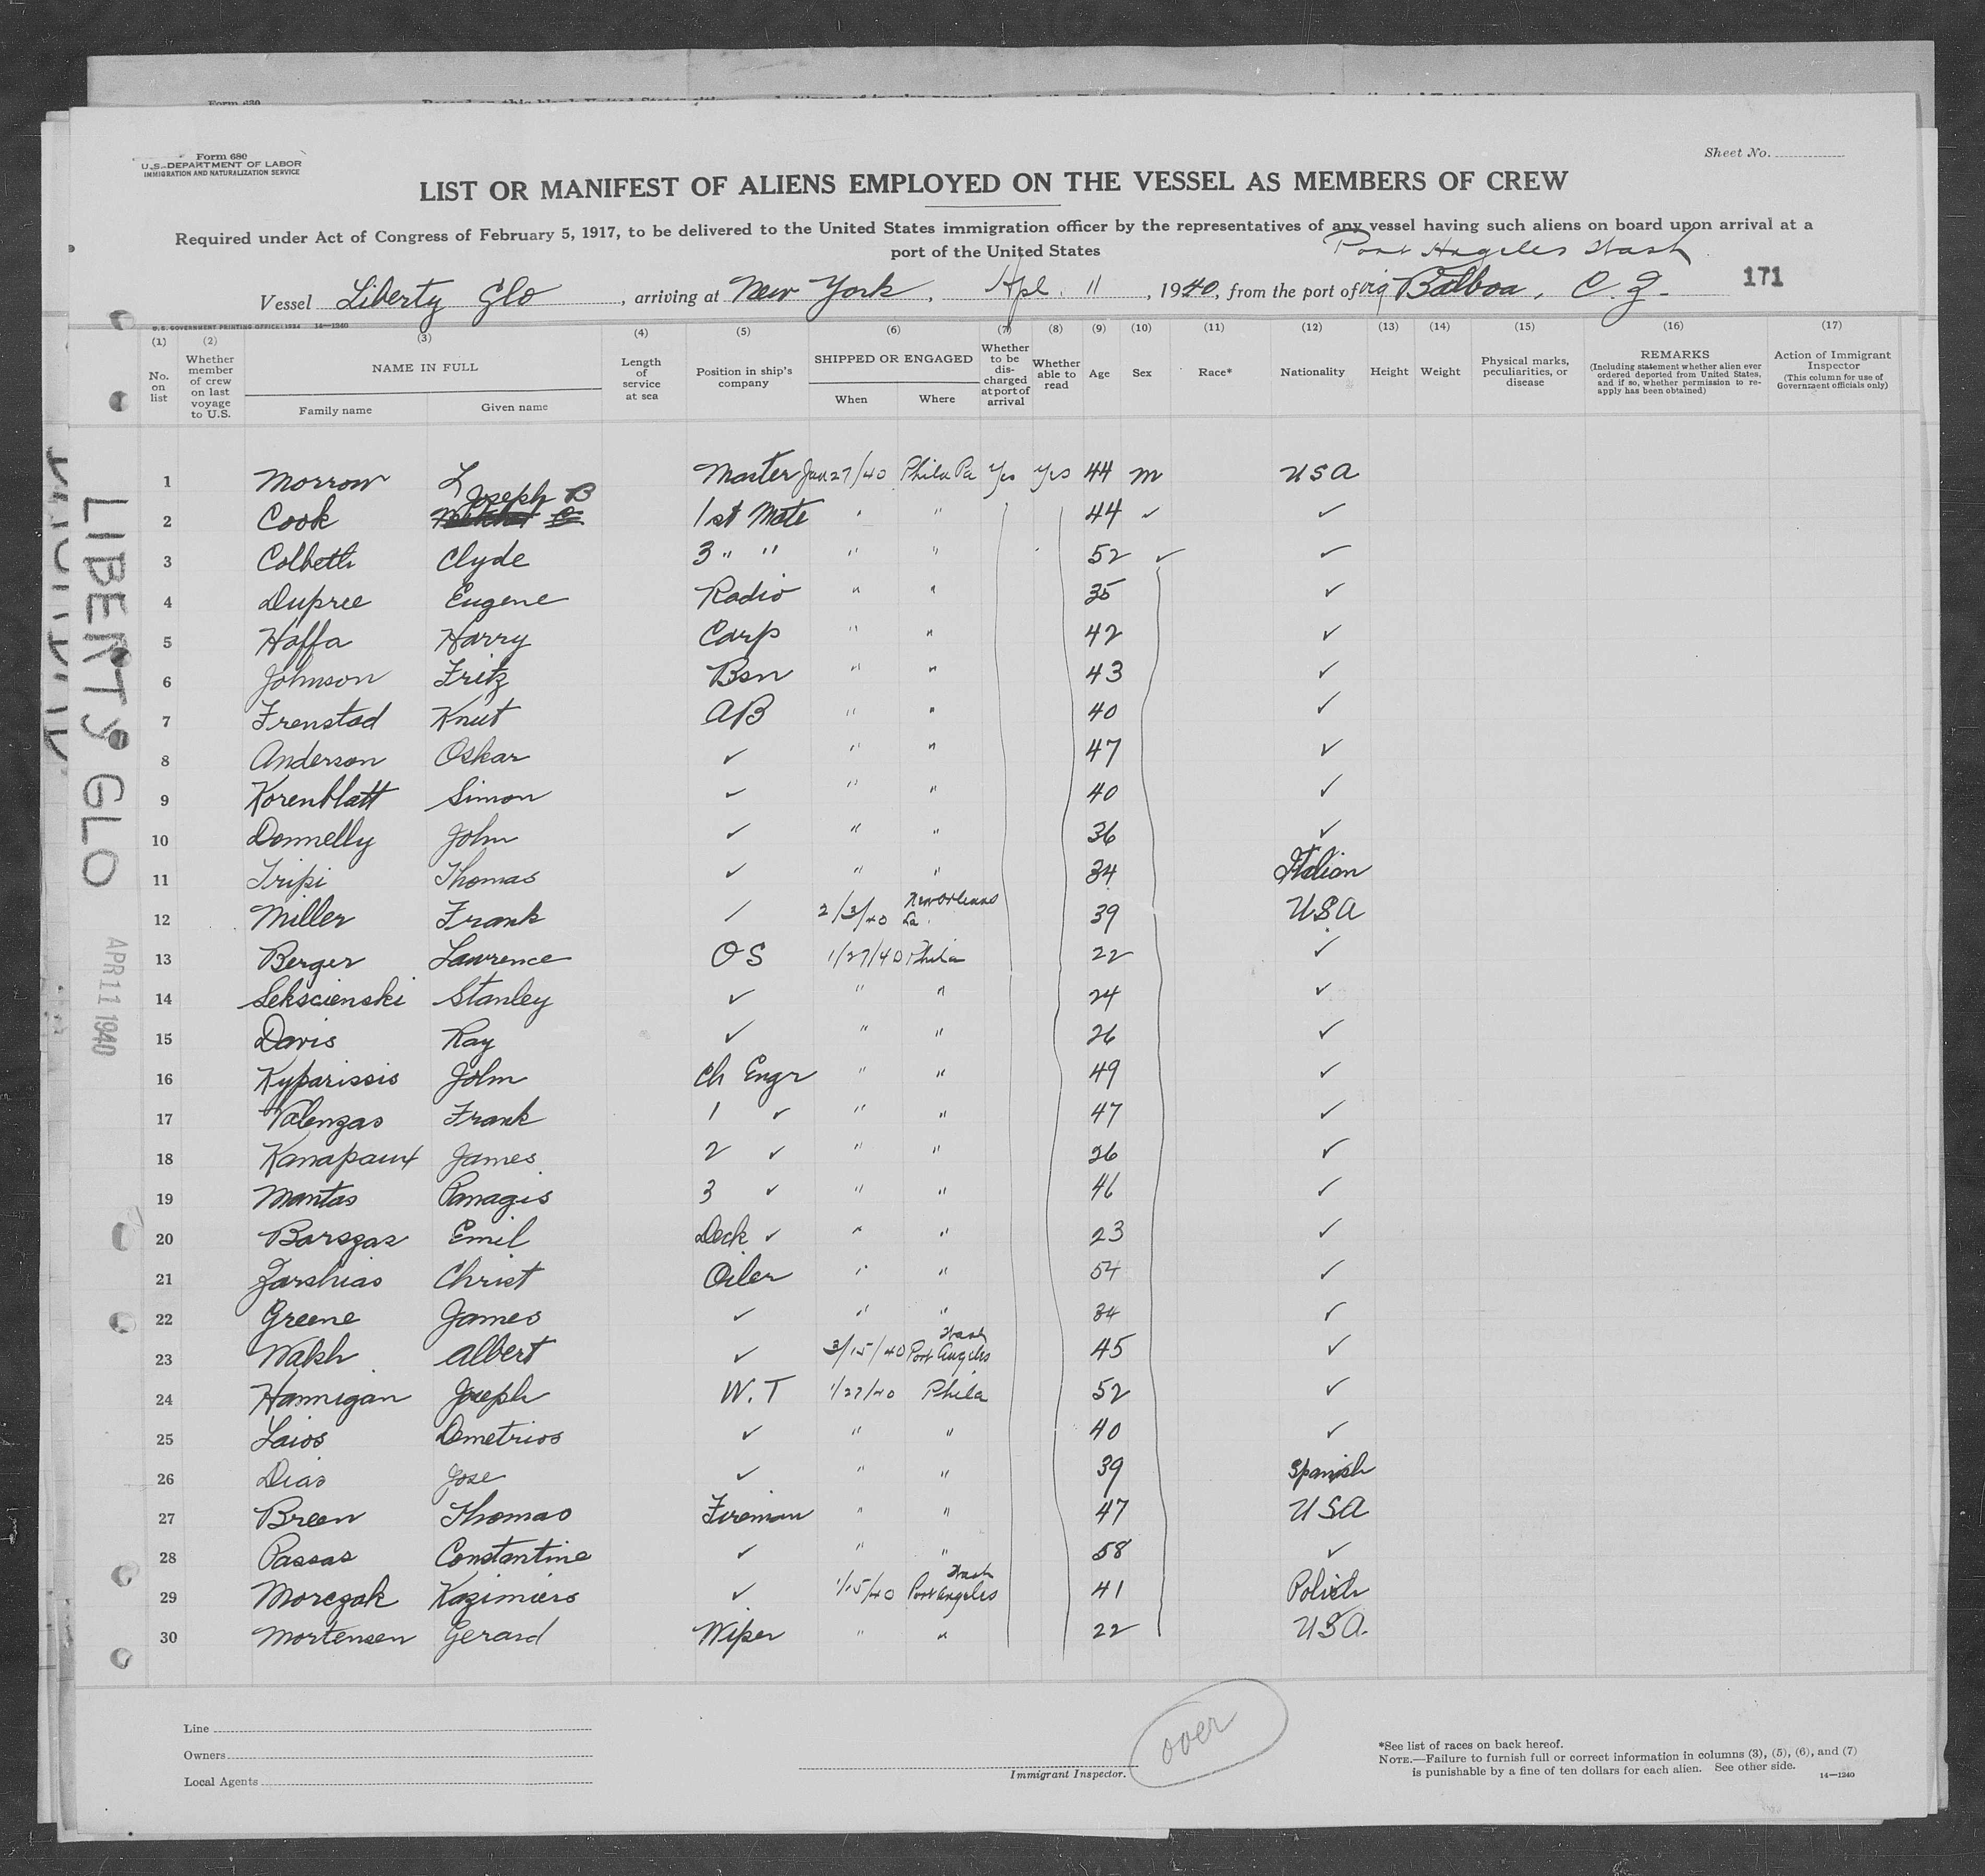 Form 680
U.S. DEPARTMENT OF LABOR
IMMIGRATION AND NATURALIZATION SERVICE
Sheet No.
LIST OR MANIFEST OF ALIENS EMPLOYED ON THE VESSEL AS MEMBERS OF CREW
Required under Act of Congress of February 5, 1917, to be delivered to the United States immigration officer by the representatives of any vessel having such aliens on board upon arrival at a
port of the United States
Port Angeles Wash
Vessel Liberty Glo, arriving at New York, Apl. 11, 1940, from the port of via Balboa, C.Z. 171
U.S. GOVERNMENT PRINTING OFFICE: 1934 14—1240
(1) (2) (3) (4) (5) (6) (7) (8) (9) (10) (11) (12) (13) (14) (15) (16) (17)
No. on list
Whether member of crew on last voyage to U.S.
NAME IN FULL
Family name Given name
Length of service at sea
Position in ship's company
SHIPPED OR ENGAGED
When Where
Whether to be discharged at port of arrival
Whether able to read
Age Sex Race* Nationality Height Weight
Physical marks, peculiarities, or disease
REMARKS
(Including statement whether alien ever ordered deported from United States, and if so, whether permission to reapply has been obtained)
Action of Immigrant Inspector
(This column for use of Government officials only)
1 Morrow L Master Jan 27/40 Phila Pa Yes Yes 44 m USA
2 Cook Joseph B 1st Mate " " 44 ✓ ✓
3 Colbeth Clyde 3 " " " " 52 ✓ ✓
4 Dupree Eugene Radio " " 35 ✓
5 Haffa Harry Carp " " 42 ✓
6 Johnson Fritz Bsn " " 43 ✓
7 Frenstad Knut AB " " 40 ✓
8 Anderson Oskar ✓ " " 47 ✓
9 Korenblatt Simon ✓ " " 40 ✓
10 Donnelly John ✓ " " 36 ✓
11 Tripi Thomas ✓ " " 34 Italian
12 Miller Frank ✓ 2/3/40 New Orleans La. 39 USA
13 Berger Lawrence OS 1/27/40 Phila 22 ✓
14 Sekscienski Stanley ✓ " " 24 ✓
15 Davis Ray ✓ " " 26 ✓
16 Kyparissis John Ch Engr " " 49 ✓
17 Valenzas Frank 1 ✓ " " 47 ✓
18 Kanapaux James 2 ✓ " " 26 ✓
19 Mantas Panagis 3 ✓ " " 46 ✓
20 Barszaz Emil Deck ✓ " " 23 ✓
21 Zarshias Christ Oiler " " 54 ✓
22 Greene James ✓ " " 34 ✓
23 Walsh Albert ✓ 3/15/40 Port Angeles Wash 45 ✓
24 Hannigan Joseph W.T 1/27/40 Phila 52 ✓
25 Laios Demetrios ✓ " " 40 ✓
26 Dias Jose ✓ " " 39 Spanish
27 Breen Thomas Fireman " " 47 USA
28 Passas Constantine ✓ " " 58 ✓
29 Morczak Kazimiers ✓ 1/15/40 Port Angeles Wash 41 Polish
30 Mortensen Gerard Wiper " " 22 USA.
LIBERTY GLO
APR 11 1940
Line
Owners
Local Agents
Immigrant Inspector.
over
*See list of races on back hereof.
NOTE.—Failure to furnish full or correct information in columns (3), (5), (6), and (7)
is punishable by a fine of ten dollars for each alien. See other side.
14—1240